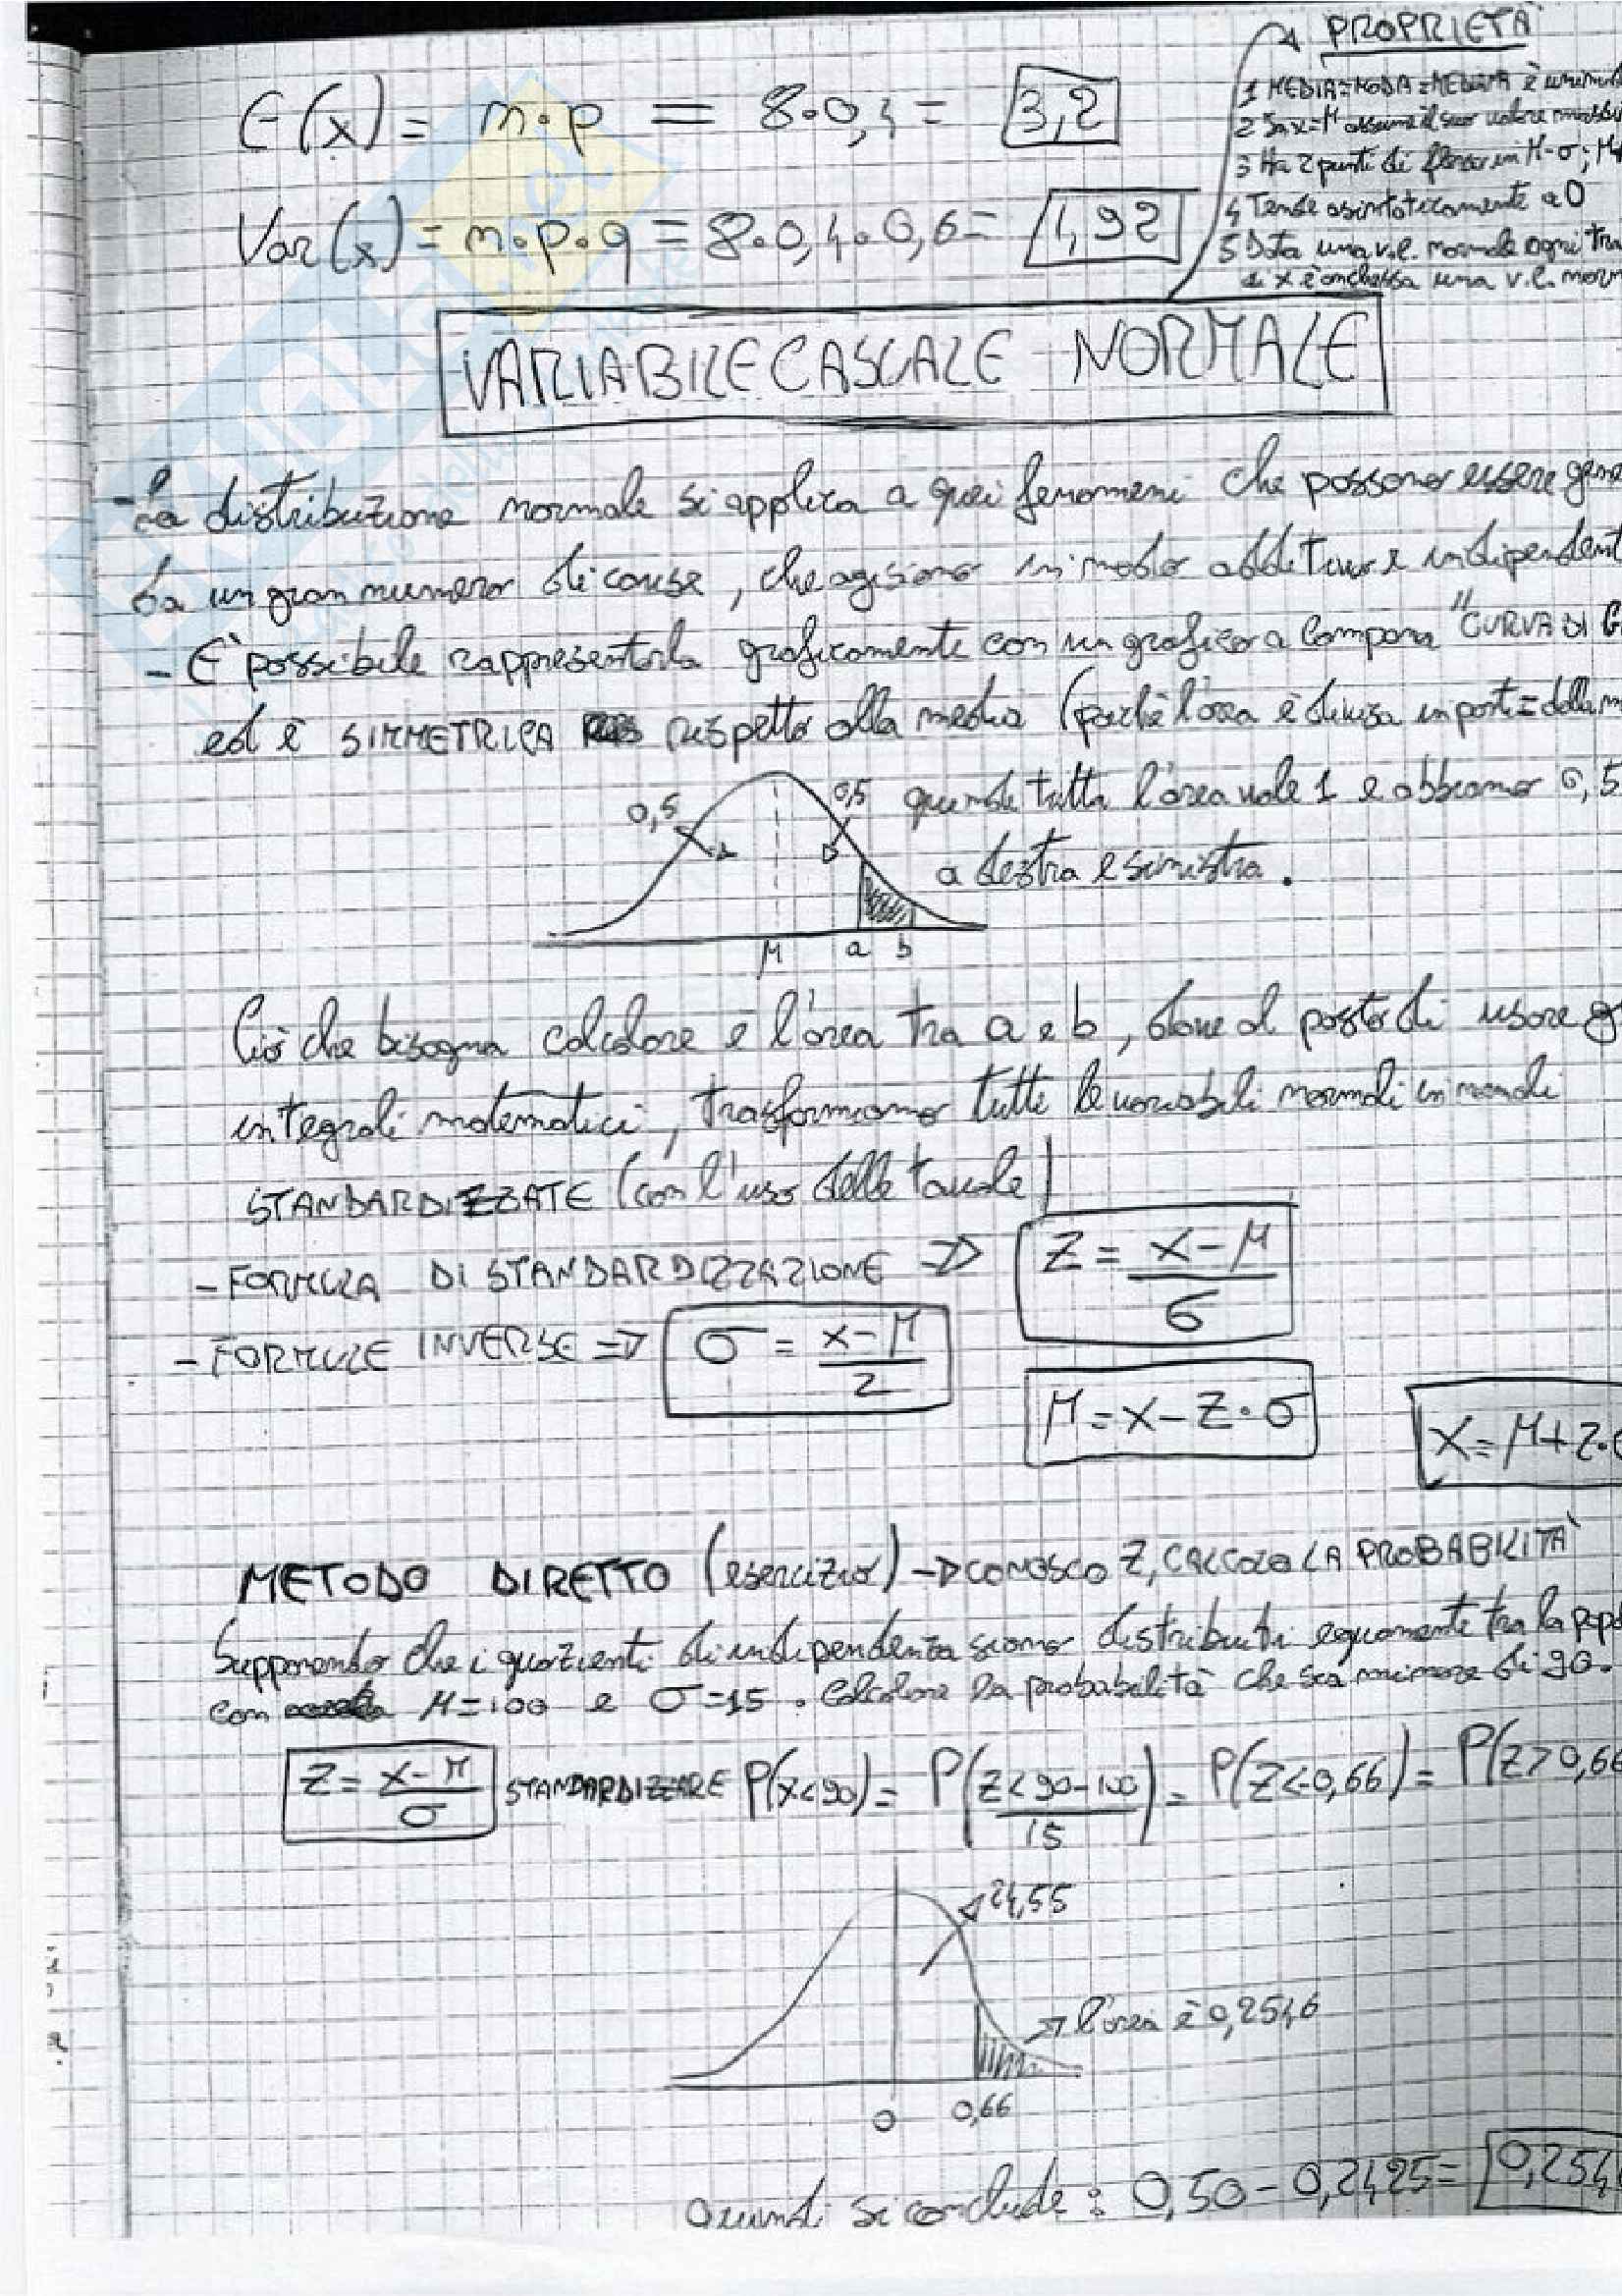 E(x) = m·p = 8·0,4 = 3,2
Var(x) = m·p·q = 8·0,4·0,6 = 1,92
PROPRIETÀ
1 MEDIA=MODA=MEDIANA È unimod
2 Se x=μ assume il suo valore massi
3 Ha 2 punti di flesso in μ-σ; μ
4 Tende asintoticamente a 0
5 Data una v.c. normale ogni tra
di x è anch'essa una v.c. norm
VARIABILE CASUALE NORMALE
- La distribuzione normale si applica a quei fenomeni che possono essere gene
da un gran numero di cause, che agiscono in modo additivo e indipendent
- È possibile rappresentarla graficamente con un grafico a campana "CURVA DI G
ed è SIMMETRICA rispetto alla media (perchè l'area è divisa in parti = dalla m
0,5
0,5
quindi tutta l'area vale 1 e abbiamo 0,5
a destra e sinistra.
μ a b
Ciò che bisogna calcolare è l'area tra a e b, dove al posto di usare g
integrali matematici, trasformiamo tutte le variabili normali in normali
STANDARDIZZATE (con l'uso delle tavole)
- FORMULA DI STANDARDIZZAZIONE => Z = x-μ / σ
- FORMULE INVERSE => σ = x-μ / z
μ = x - z·σ
x = μ + z·
METODO DIRETTO (esercizio) -> CONOSCO Z, CALCOLO LA PROBABILITÀ
Supponendo che i quozienti di indipendenza siano distribuiti equamente tra la popo
con μ=100 e σ=15. Calcolare la probabilità che sia minore di 90.
Z = x-μ / σ STANDARDIZZARE P(x<90) = P(z < 90-100 / 15) = P(z<-0,66) = P(z>0,66
24,55
l'area è 0,2546
0 0,66
Quindi si conclude: 0,50 - 0,2425 = 0,254